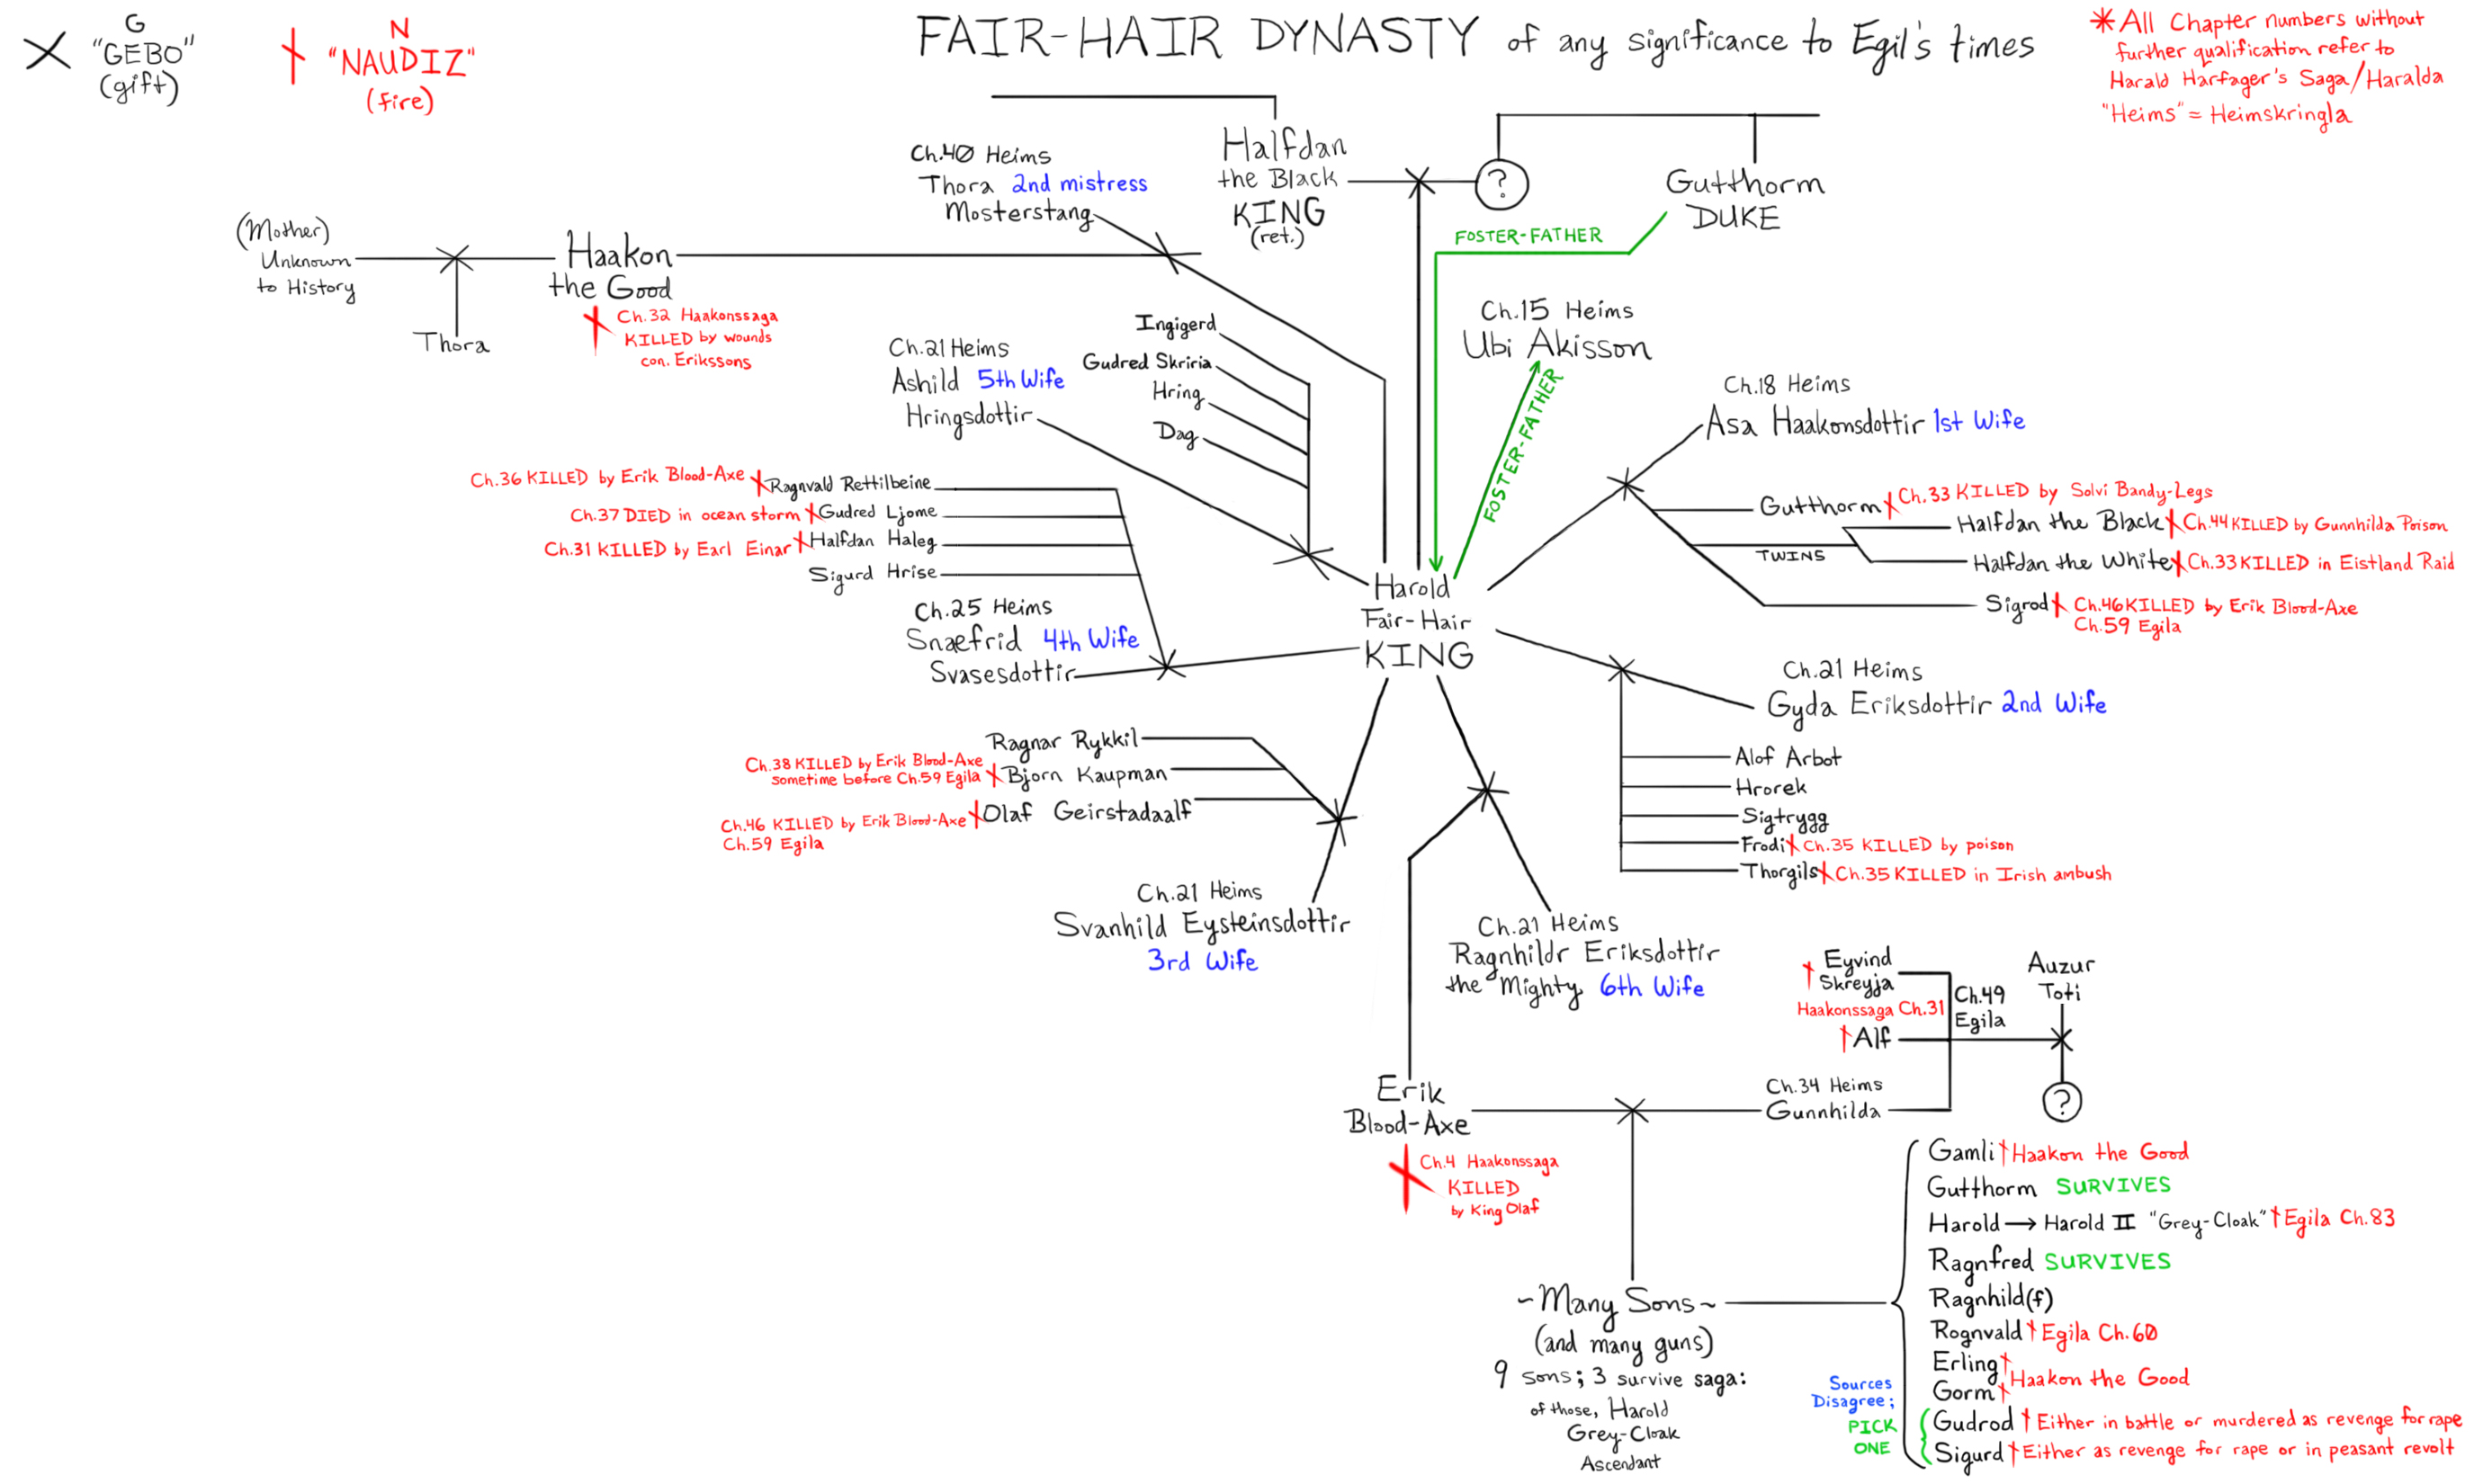 G
"GEBO"
(gift)
N
"NAUDIZ"
(fire)
FAIR-HAIR DYNASTY of any significance to Egil's times
*All Chapter numbers without
further qualification refer to
Harald Harfager's Saga/Haralda
"Heims" = Heimskringla
Ch.40 Heims
Thora 2nd mistress
Mosterstang
Halfdan
the Black
KING
(ret.)
?
Gutthorm
DUKE
FOSTER-FATHER
(Mother)
Unknown
to History
Haakon
the Good
Thora
Ch.32 Haakonssaga
KILLED by wounds
con. Erikssons
Ch.21 Heims
Ashild 5th Wife
Hringsdottir
Ingigerd
Gudred Skriria
Hring
Dag
Ch.15 Heims
Ubi Akisson
FOSTER-FATHER
Ch.18 Heims
Asa Haakonsdottir 1st Wife
Gutthorm Ch.33 KILLED by Solvi Bandy-Legs
TWINS
Halfdan the Black Ch.44 KILLED by Gunnhilda Poison
Halfdan the White Ch.33 KILLED in Eistland Raid
Sigrod Ch.46 KILLED by Erik Blood-Axe
Ch.59 Egila
Ch.36 KILLED by Erik Blood-Axe Ragnvald Rettilbeine
Ch.37 DIED in ocean storm Gudred Ljome
Ch.31 KILLED by Earl Einar Halfdan Haleg
Sigurd Hrise
Ch.25 Heims
Snaefrid 4th Wife
Svasesdottir
Harold
Fair-Hair
KING
Ch.21 Heims
Gyda Eriksdottir 2nd Wife
Alof Arbot
Hrorek
Sigtrygg
Frodi Ch.35 KILLED by poison
Thorgils Ch.35 KILLED in Irish ambush
Ragnar Rykkil
Ch.38 KILLED by Erik Blood-Axe
sometime before Ch.59 Egila Bjorn Kaupman
Ch.46 KILLED by Erik Blood-Axe Olaf Geirstadaalf
Ch.59 Egila
Ch.21 Heims
Svanhild Eysteinsdottir
3rd Wife
Ch.21 Heims
Ragnhildr Eriksdottir
the Mighty 6th Wife
Eyvind
Skreyja
Haakonssaga Ch.31
Alf
Ch.49
Egila
Auzur
Toti
?
Erik
Blood-Axe
Ch.34 Heims
Gunnhilda
Ch.4 Haakonssaga
KILLED
by King Olaf
~Many Sons~
(and many guns)
9 sons; 3 survive saga:
of those, Harold
Grey-Cloak
Ascendant
Gamli Haakon the Good
Gutthorm SURVIVES
Harold → Harold II "Grey-Cloak" Egila Ch.83
Ragnfred SURVIVES
Ragnhild(f)
Rognvald Egila Ch.60
Erling
Gorm
Haakon the Good
Sources
Disagree;
PICK
ONE
Gudrod Either in battle or murdered as revenge for rape
Sigurd Either as revenge for rape or in peasant revolt